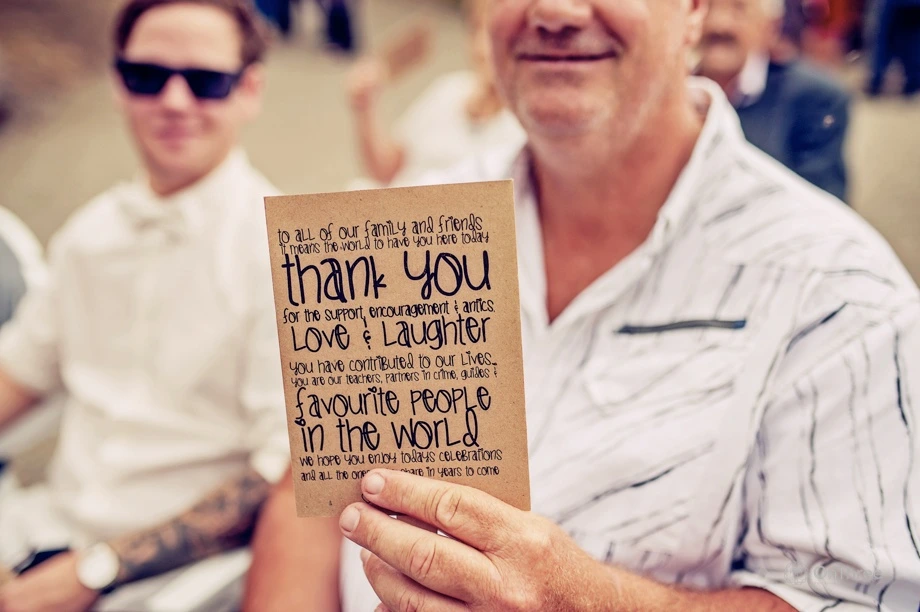 to all of our family and friends
it means the world to have you here today
thank you
for the support, encouragement & antics.
Love & Laughter
you have contributed to our lives...
you are our teachers, partners in crime, guides &
favourite people
in the world
we hope you enjoy todays celebrations
and all the one share in years to come